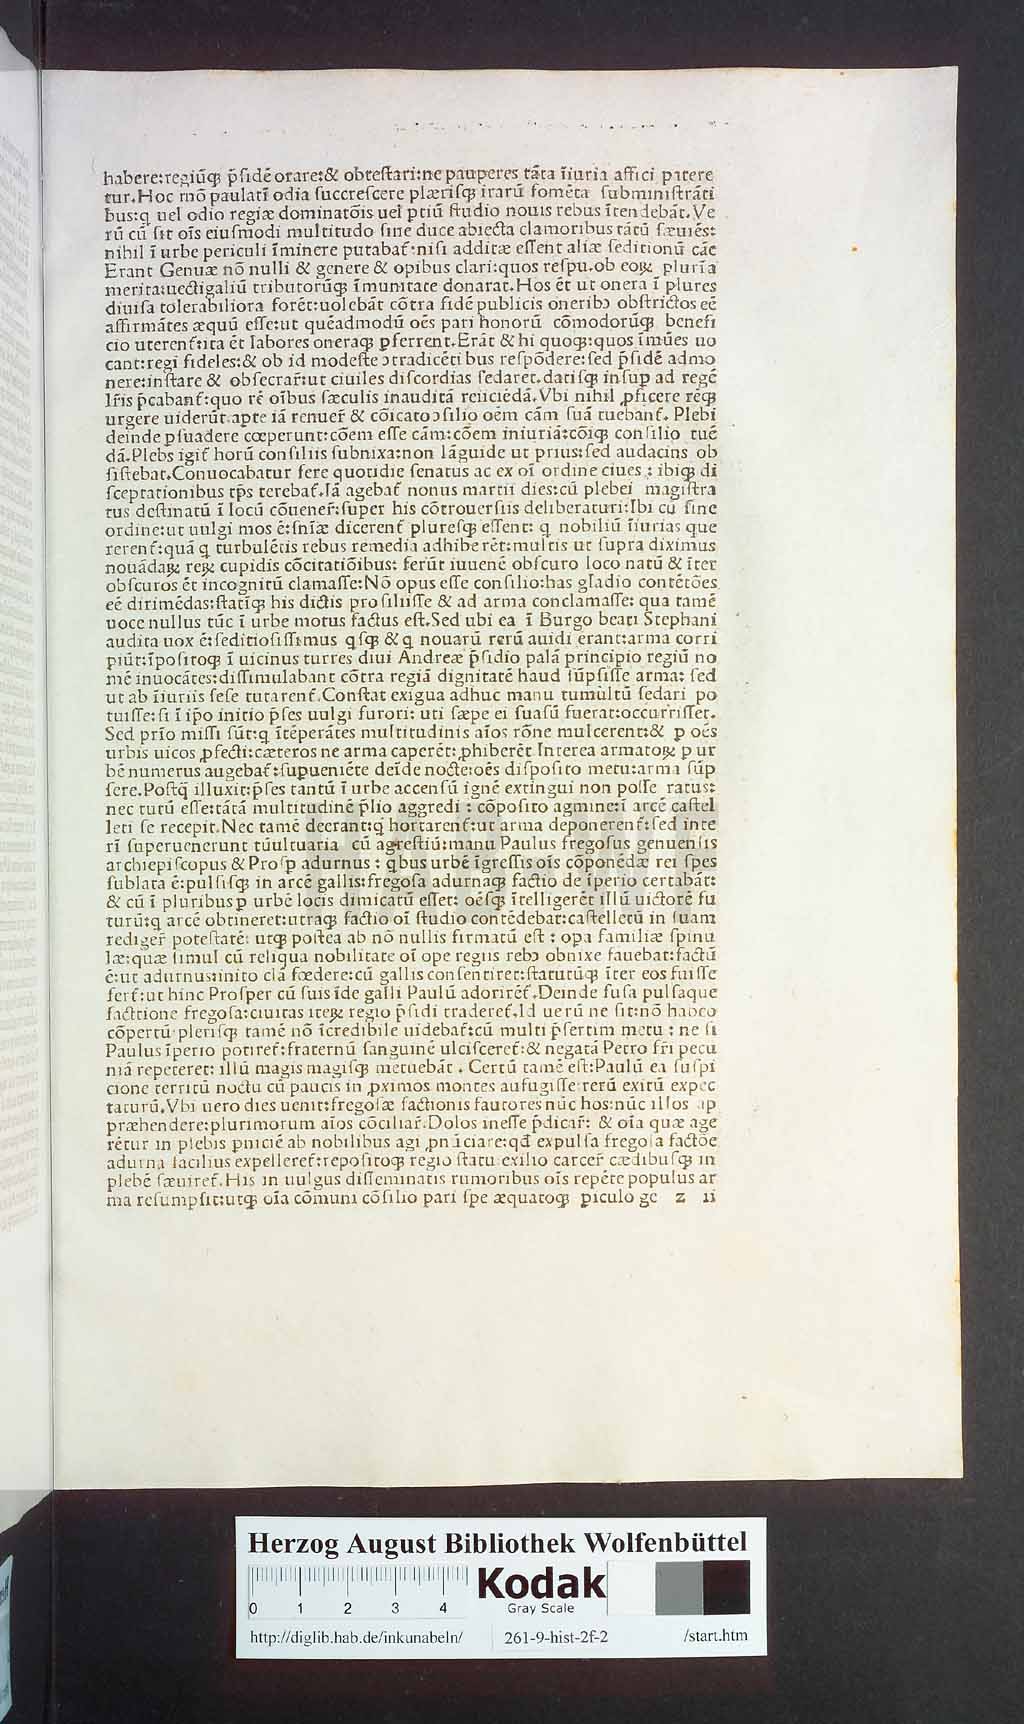 habere:regiūqꝫ p̄sidē orare:& obtestari:ne pauperes tāta īiuria affici patere
tur.Hoc mō paulatī odia succrescere plærisqꝫ irarū fomēta subministrāti
bus:q uel odio regiæ dominatōis uel ptiū studio nouis rebus ītendebāt.Ve
rū cū sit oīs eiusmodi multitudo sine duce abiecta clamoribus tātū sæuiēs:
nihil ī urbe periculi īminere putabat̄:nisi additæ essent aliæ seditionū cāe
Erant Genuæ nō nulli & genere & opibus clari:quos respu.ob eoꝝ pluria
merita:uectigaliū tributorūqꝫ īmunitate donarat.Hos ēt ut onera ī plures
diuisa tolerabiliora forēt:uolebāt cōtra fidē publicis oneribꝰ obstrictos eē
affirmātes æquū esse:ut quēadmodū oēs pari honorū cōmodorūqꝫ benefi
cio uterent̄:ita ēt labores oneraqꝫ ꝑferrent.Erāt & hi quoqꝫ:quos īmūes uo
cant:regi fideles:& ob id modeste ꝯtradicēti bus respōdere:sed p̄sidē admo
nere:instare & obsecrar̄:ut ciuiles discordias sedaret.datisqꝫ insup ad regē
lr̄is p̄cabant̄:quo rē oībus sæculis inauditā reiiciēdā.Vbi nihil ꝓficere reqꝫ
urgere uiderūt.apte iā renuer̄ & cōicato ꝯsilio oēm cām suā tuebant̄. Plebi
deinde ꝑsuadere cœperunt:cōem esse cām:cōem iniuriā:cōiqꝫ consilio tuē
dā.Plebs igit̄ horū consiliis subnixa:non lāguide ut prius:sed audacius ob
sistebat.Conuocabatur fere quotidie senatus ac ex oī ordine ciues : ibiqꝫ di
sceptationibus tp̄s terebat̄.Iā agebat̄ nonus martii dies:cū plebei magistra
tus destinatū ī locū cōuener̄:super his cōtrouersiis deliberaturi:Ibi cū sine
ordine:ut uulgi mos ē:sn̄iæ dicerent̄ pluresqꝫ essent: q nobiliū īiurias que
rerent̄:quā q turbulētis rebus remedia adhibe rēt:multis ut supra diximus
nouādaꝝ reꝝ cupidis cōcitatiōibus: ferūt iuuenē obscuro loco natū & īter
obscuros ēt incognitū clamasse:Nō opus esse consilio:has gladio contētōes
eē dirimēdas:statīqꝫ his dictis prosiluisse & ad arma conclamasse: qua tamē
uoce nullus tūc ī urbe motus factus est.Sed ubi ea ī Burgo beati Stephani
audita uox ē:seditiosissimus qsqꝫ & q nouarū rerū auidi erant:arma corri
piūt:īpositoqꝫ ī uicinus turres diui Andreæ p̄sidio palā principio regiū no
mē inuocātes:dissimulabant cōtra regiā dignitatē haud sūpsisse arma: sed
ut ab īiuriis sese tutarent̄.Constat exigua adhuc manu tumultū sedari po
tuisse:si ī ip̄o initio p̄ses uulgi furori: uti sæpe ei suasū fuerat:occurrisset.
Sed prīo missi sūt:q ītēperātes multitudinis aīos rōne mulcerent:& ꝑ oēs
urbis uicos ꝓfecti:cæteros ne arma caperēt:ꝓhiberēt Interea armatoꝝ ꝑ ur
bē numerus augebat̄:supueniēte deīde nocte:oēs disposito metu:arma sūp
sere.Postq̄ illuxit:p̄ses tantū ī urbe accensū ignē extingui non posse ratus:
nec tutū esse:tātā multitudinē p̄lio aggredi : cōposito agmine:ī arcē castel
leti se recepit.Nec tamē deerant:q hortarent̄:ut arma deponerent̄:sed inte
rī superuenerunt tūultuaria cū agrestiū:manu Paulus fregosus genuensis
archiepiscopus & Prosp adurnus : qbus urbē īgressis oīs cōponēdæ rei spes
sublata ē:pulsisqꝫ in arcē gallis:fregosa adurnaqꝫ factio de īperio certabāt:
& cū ī pluribus ꝑ urbē locis dimicatū esset: oēsqꝫ ītelligerēt illū uictorē fu
turū:q arcē obtineret:utraqꝫ factio oī studio contēdebat:castelletū in suam
rediger̄ potestatē: utqꝫ postea ab nō nullis firmatū est : opa familiæ spinu
læ:quæ simul cū reliqua nobilitate oī ope regiis rebꝰ obnixe fauebat:factū
ē:ut adurnus:inito clā fœdere:cū gallis consentiret:statutūqꝫ īter eos fuisse
fert̄:ut hinc Prosper cū suis īde galli Paulū adorirēt̄.Deinde fusa pulsaque
factione fregosa:ciuitas iteꝝ regio p̄sidi traderet̄.Id uerū ne sit:nō habeo
cōpertū plerisqꝫ tamē nō īcredibile uidebat̄:cū multi p̄sertim metu : ne si
Paulus īperio potiret̄:fraternū sanguinē ulcisceret̄:& negatā Petro fr̄i pecu
niā repeteret: illū magis magisqꝫ metuebāt . Certū tamē est:Paulū ea suspi
cione territū noctu cū paucis in ꝓximos montes aufugisse:rerū exitū expec
taturū.Vbi uero dies uenit:fregosæ factionis fautores nūc hos:nūc illos ap
præhendere:plurimorum aīos cōciliar̄.Dolos inesse p̄dicar̄: & oīa quæ age
rētur in plebis ꝑniciē ab nobilibus agi ꝓnūciare:qđ expulsa fregosa factōe
adurna facilius expelleret̄:repositoqꝫ regio statu exilio carcer̄ cædibusqꝫ in
plebē sæuiret̄.His in uulgus disseminatis rumoribus oīs repēte populus ar
ma resumpsit:utqꝫ oīa cōmuni cōsilio pari spe æquatoqꝫ ꝑiculo ge z ii
Herzog August Bibliothek Wolfenbüttel
0 1 2 3 4
Kodak
Gray Scale
http://diglib.hab.de/inkunabeln/ 261-9-hist-2f-2 /start.htm